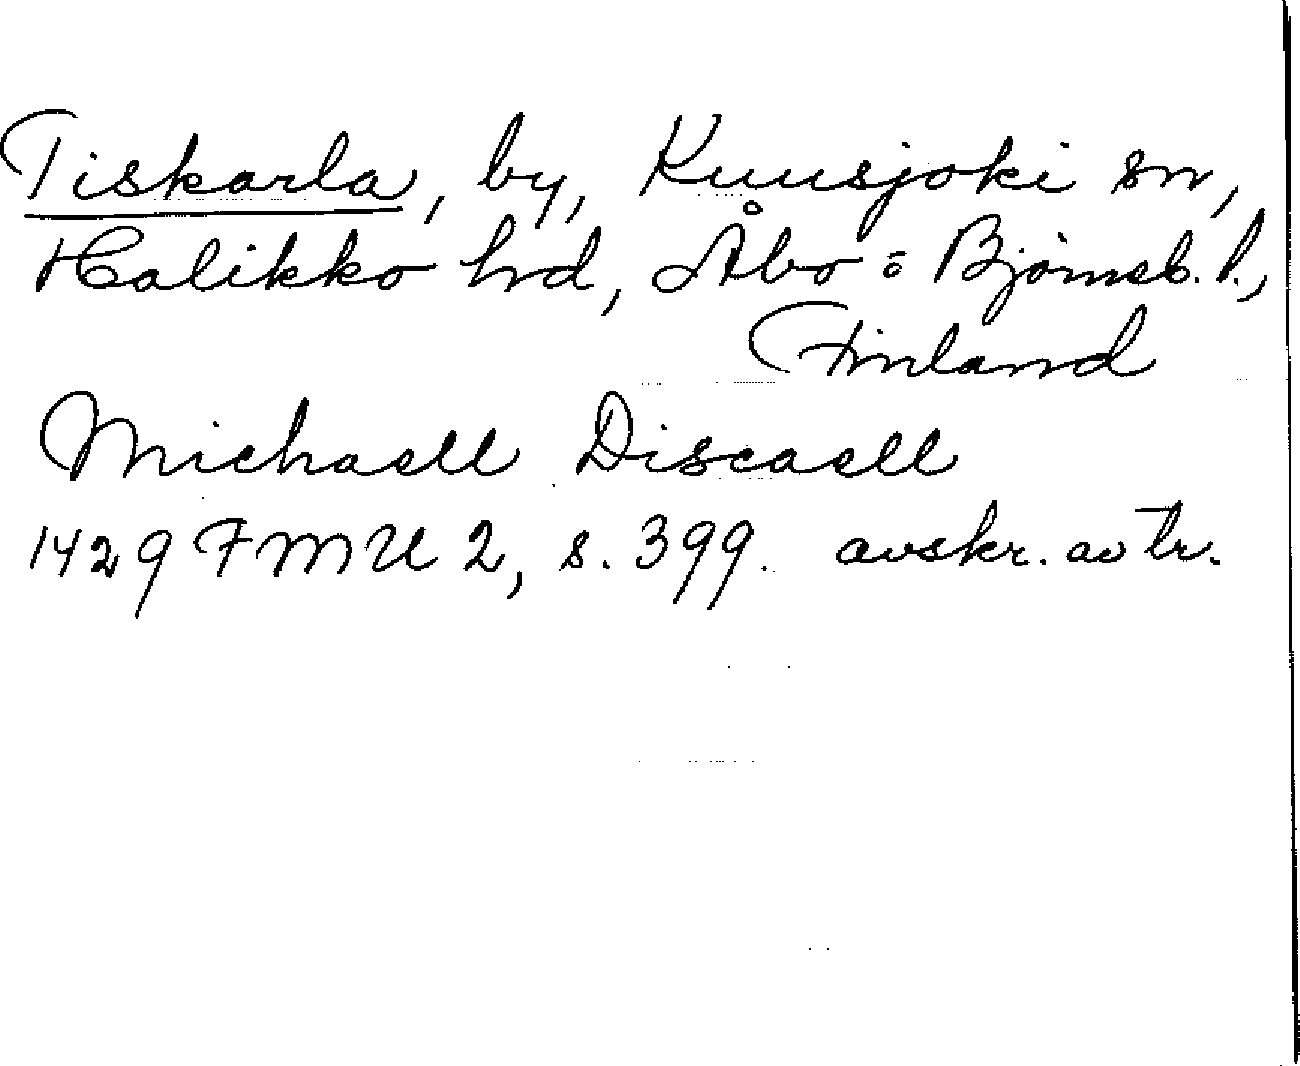 Tiskarla, by, Kuusjoki sn,
Halikko hd, Åbo = Björneb. l.,
Finland
Michaell Discaell
1429 FMU 2, s. 399. avskr. av tr.